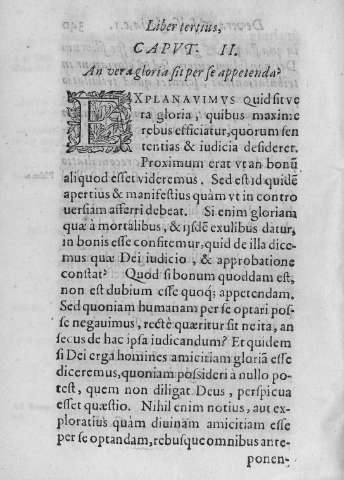 Liber tertius,
CAPVT. II.
An vera gloria sit per se appetenda?
EXPLANAVIMVS quid sit ve
ra gloria, quibus maxime
rebus efficiatur, quorum sen
tentias & iudicia desideret.
Proximum erat vt an bonũ
aliquod esset videremus. Sed est id quidẽ
apertius & manifestius quàm vt in contro
uersiam afferri debeat. Si enim gloriam
quæ à mortalibus, & ijsdẽ exulibus datur,
in bonis esse confitemur, quid de illa dice-
mus quæ Dei iudicio, & approbatione
constat? Quod si bonum quoddam est,
non est dubium esse quoq; appetendam.
Sed quoniam humanam per se optari pos-
se negauimus, rectè quæritur sit ne ita, an
secus de hac ipsa iudicandum? Et quidem
si Dei ergà homines amicitiam gloriã esse
diceremus, quoniam possideri à nullo po-
test, quem non diligat Deus, perspicua
esset quæstio. Nihil enim notius, aut ex-
ploratius quàm diuinam amicitiam esse
per se optandam, rebusque omnibus ante-
ponen-